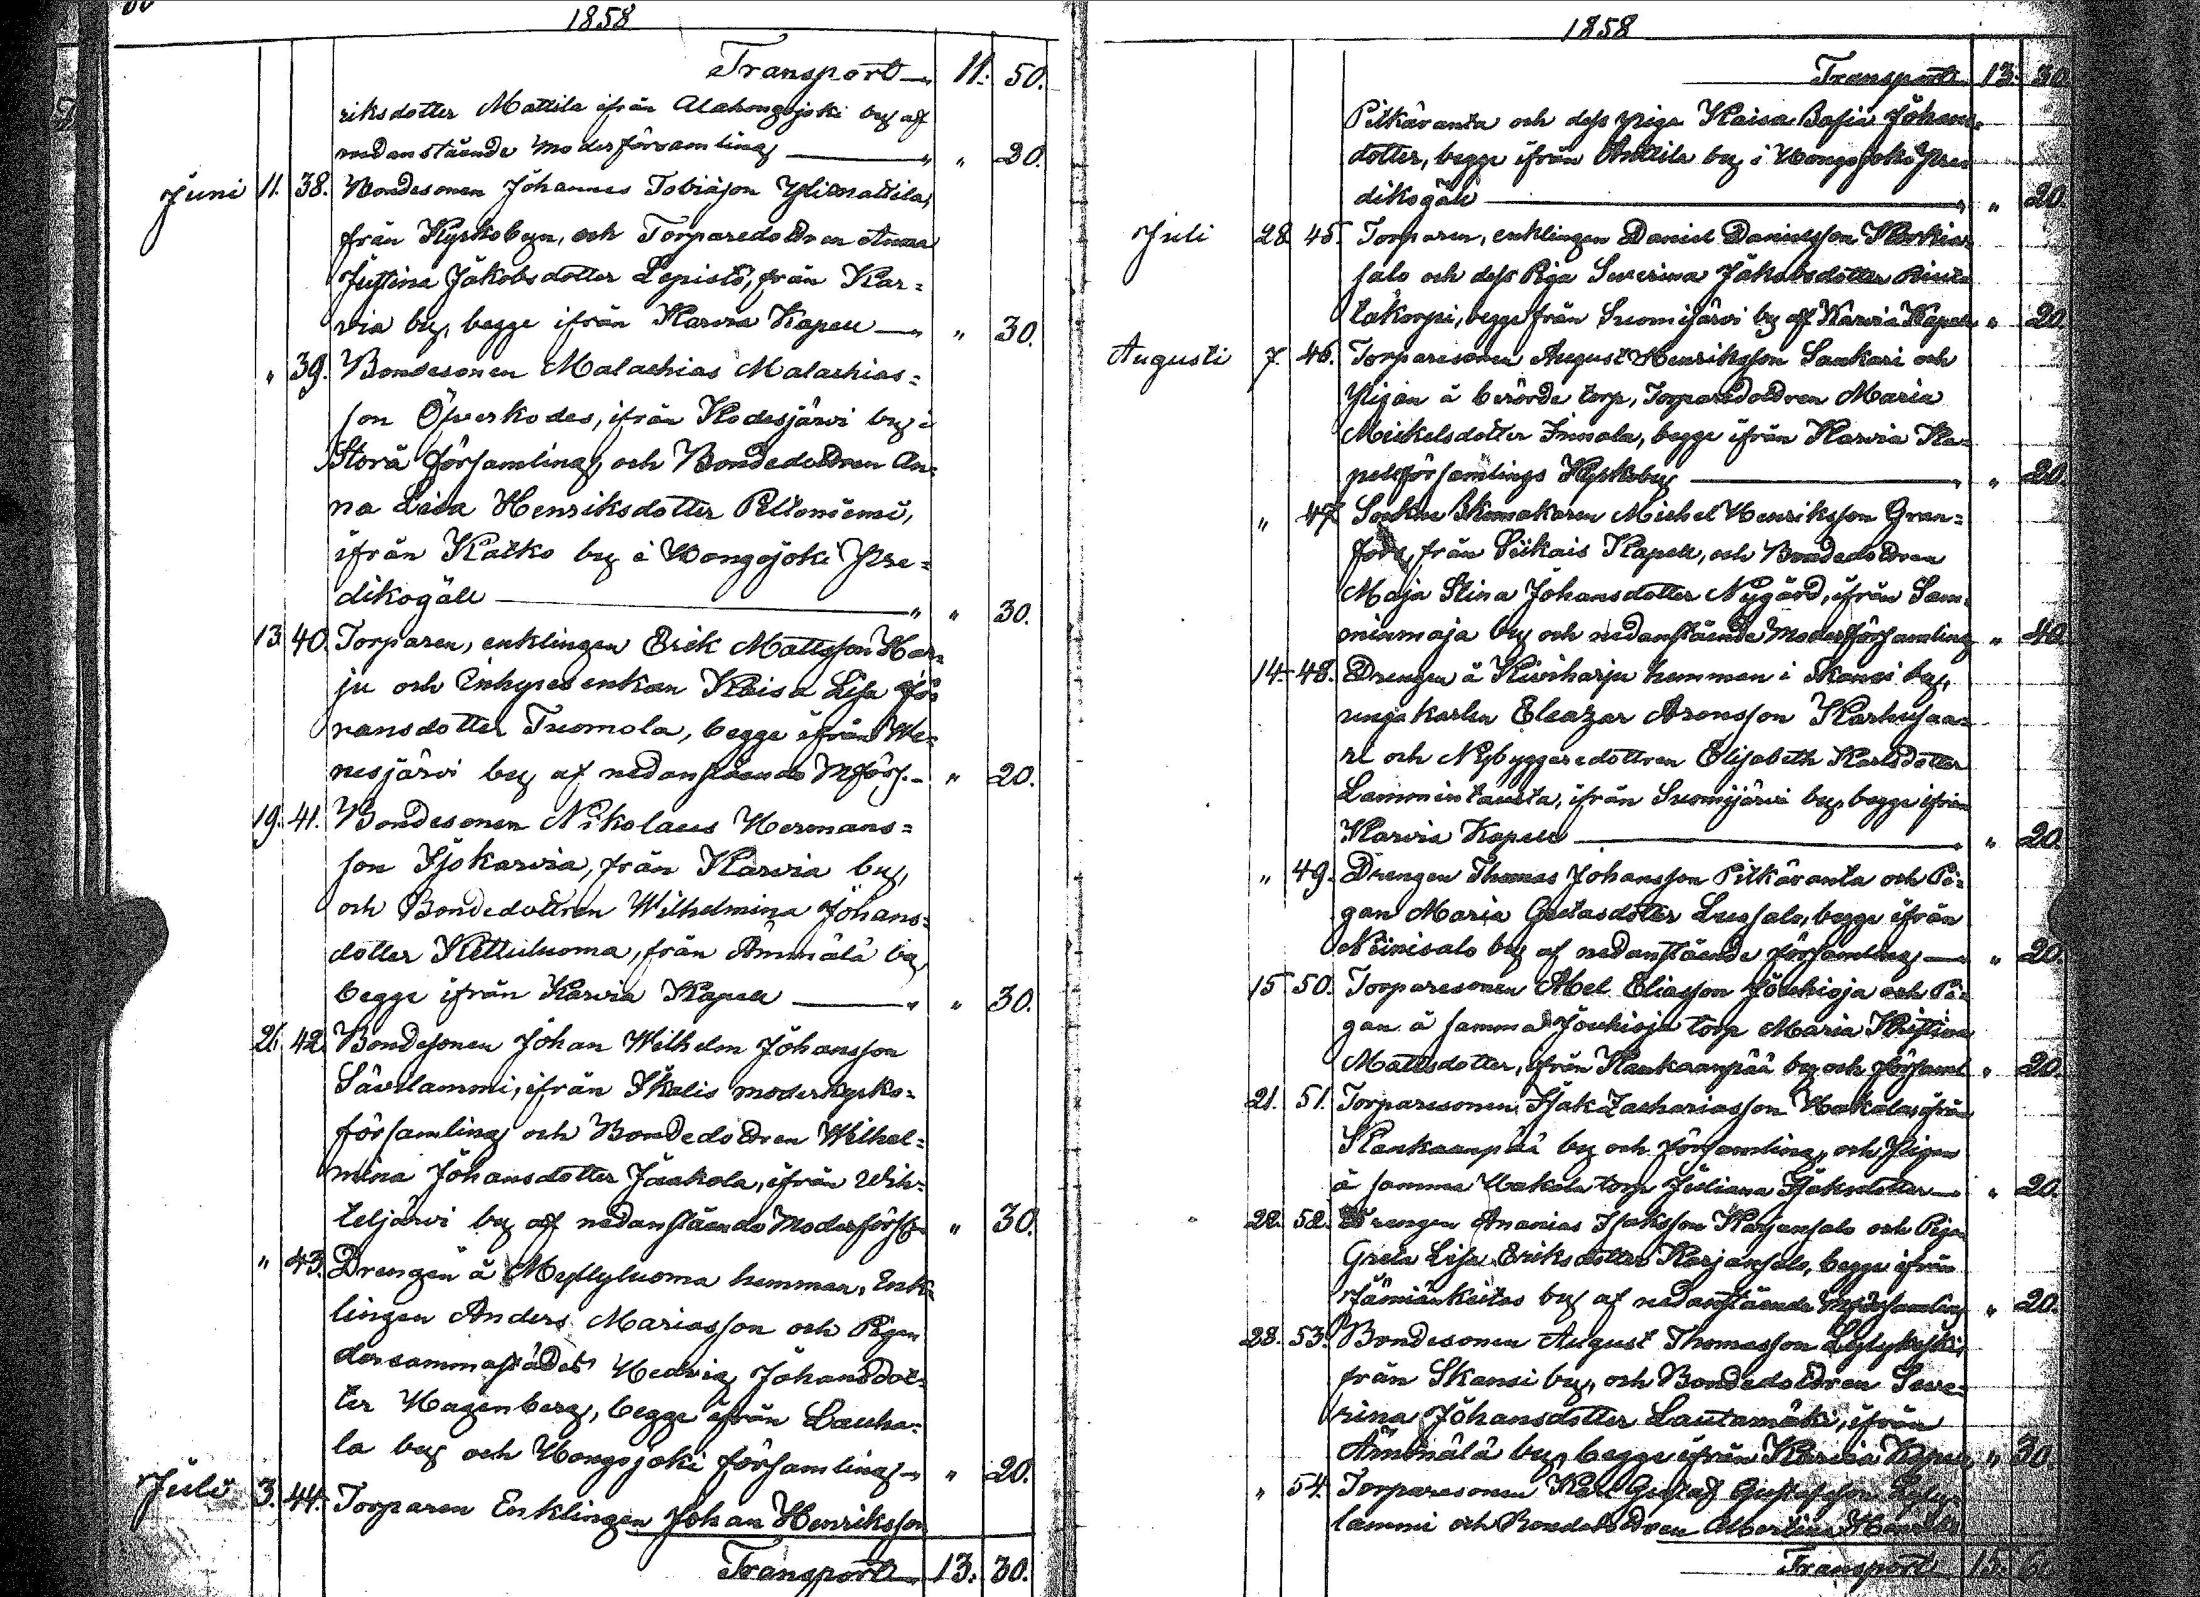 1858
Transport — 11. 50.
riksdotter Mattila ifrån Alahongojoki by af
nedanstående Moderförsamling — " " 20.
Juni 11. 38. Bondesonen Johannes Tobiasson Ylimattila,
från Kyrkobyn, och Torparedottren Anna
Justina Jakobsdotter Lepistö, från Kar=
via by, begge ifrån Karvia Kapell — " " 30.
" 39. Bondesonen Malachias Malachias=
son Öfverkodes, ifrån Kodesjärvi by i
Storå församling, och Bondedottren An=
na Lisa Henriksdotter Peltoniemi,
ifrån Katko by i Hongojoki Pre=
dikogäll — " " 30.
13. 40. Torparen, enklingen Erik Mattsson Har=
ju och Inhyses enkan Kaisa Lisa Jö=
ransdotter Tuomola, begge ifrån We=
nesjärvi by af nedanstående Mförs. — " 20.
19. 41. Bondesonen Nikolaus Hermans=
son Isokarvia, från Karvia by,
och Bondedottren Wilhelmina Johans=
dotter Kettuluoma, från Ämmälä by
begge ifrån Karvia Kapell — " " 30.
26. 42. Bondesonen Johan Wilhelm Johansson
Sävilammi, ifrån Ikalis moderkyrko=
församling och Bondedottren Wilhel=
mina Johansdotter Jaakola, ifrån Wih=
teljärvi by af nedanstående Moderförs. " 30.
" 43. Drengen å Myllyluoma hemman, Enk=
lingen Anders Mariasson och Pigan
dersammastädes Hedvig Johansdot=
ter Hagenberg, begge ifrån Lauha=
la by och Hongojoki församling — " " 20.
Juli 3. 44. Torparen Enklingen Johan Henriksson
Transport — 13. 30.
1858
Transport — 13. 30.
Pitkäranta och dess piga Kaisa Johans=
dotter, begge ifrån Anttila by i Hongojoki Pre=
dikogäll — " " 20.
Juli 28. 45. Torparen, enklingen Daniel Danielsson
salo och dess Piga Severina Jakobsdotter
takorpi, begge från Suomijärvi by af Karvia Kapell " 20.
Augusti 7. 46. Torparesonen August Henriksson Saukari och
Pigan å berörde torp, Torparedottren Maria
Mickelsdotter Innala, begge ifrån Karvia Ka=
pellförsamlings Kyrkoby — " " 20.
" 47. Sockne Skomakaren Michel Henriksson Gran=
fors, från Siikais Kapell, och Bondedottren
Maja Stina Johansdotter Nygård, ifrån Sam=
minmaja by och nedanstående Moderförsamling " 40.
14. 48. Drengen å Kiviharju hemman i Skansi by,
unga karlen Eleazar Aronsson Karhusaa=
ri och Nybyggaredottren Elisabeth Karlsdotter
Lammintausta, ifrån Suomijärvi by, begge ifrån
Karvia Kapell — " " 20.
" 49. Drengen Thomas Johansson Pitkäranta och Pi=
gan Maria Gretasdotter Luosalo, begge ifrån
Niinisalo by af nedanstående församling — " 20.
15. 50. Torparesonen Abel Eliasson Jouhioja och Pi=
gan å samma Jouhioja torp Maria Kristina
Mattsdotter, ifrån Kankaanpää by och församl. " 20.
21. 51. Torparesonen Isak Zachariasson Hakala, ifrån
Kankaanpää by och församling, och Pigan
å samma Hakala torp Juliana Isaksdotter — " 20.
22. 52. Drengen Ananias Isaksson Karjansalo och Pigan
Greta Lisa Eriksdotter Karjansalo, begge ifrån
by af nedanstående Mförsamling " 20.
28. 53. Bondesonen August Thomasson Lylykoski,
från Skansi by, och Bondedottren Seve=
rina Johansdotter Lautamäki, ifrån
Ämmälä by, begge ifrån Karvia Kapell " 30.
" 54. Torparesonen Karl Gustaf Gustafsson Lyly=
lammi och Bondedottren Albertina Henriks
Transport 15.